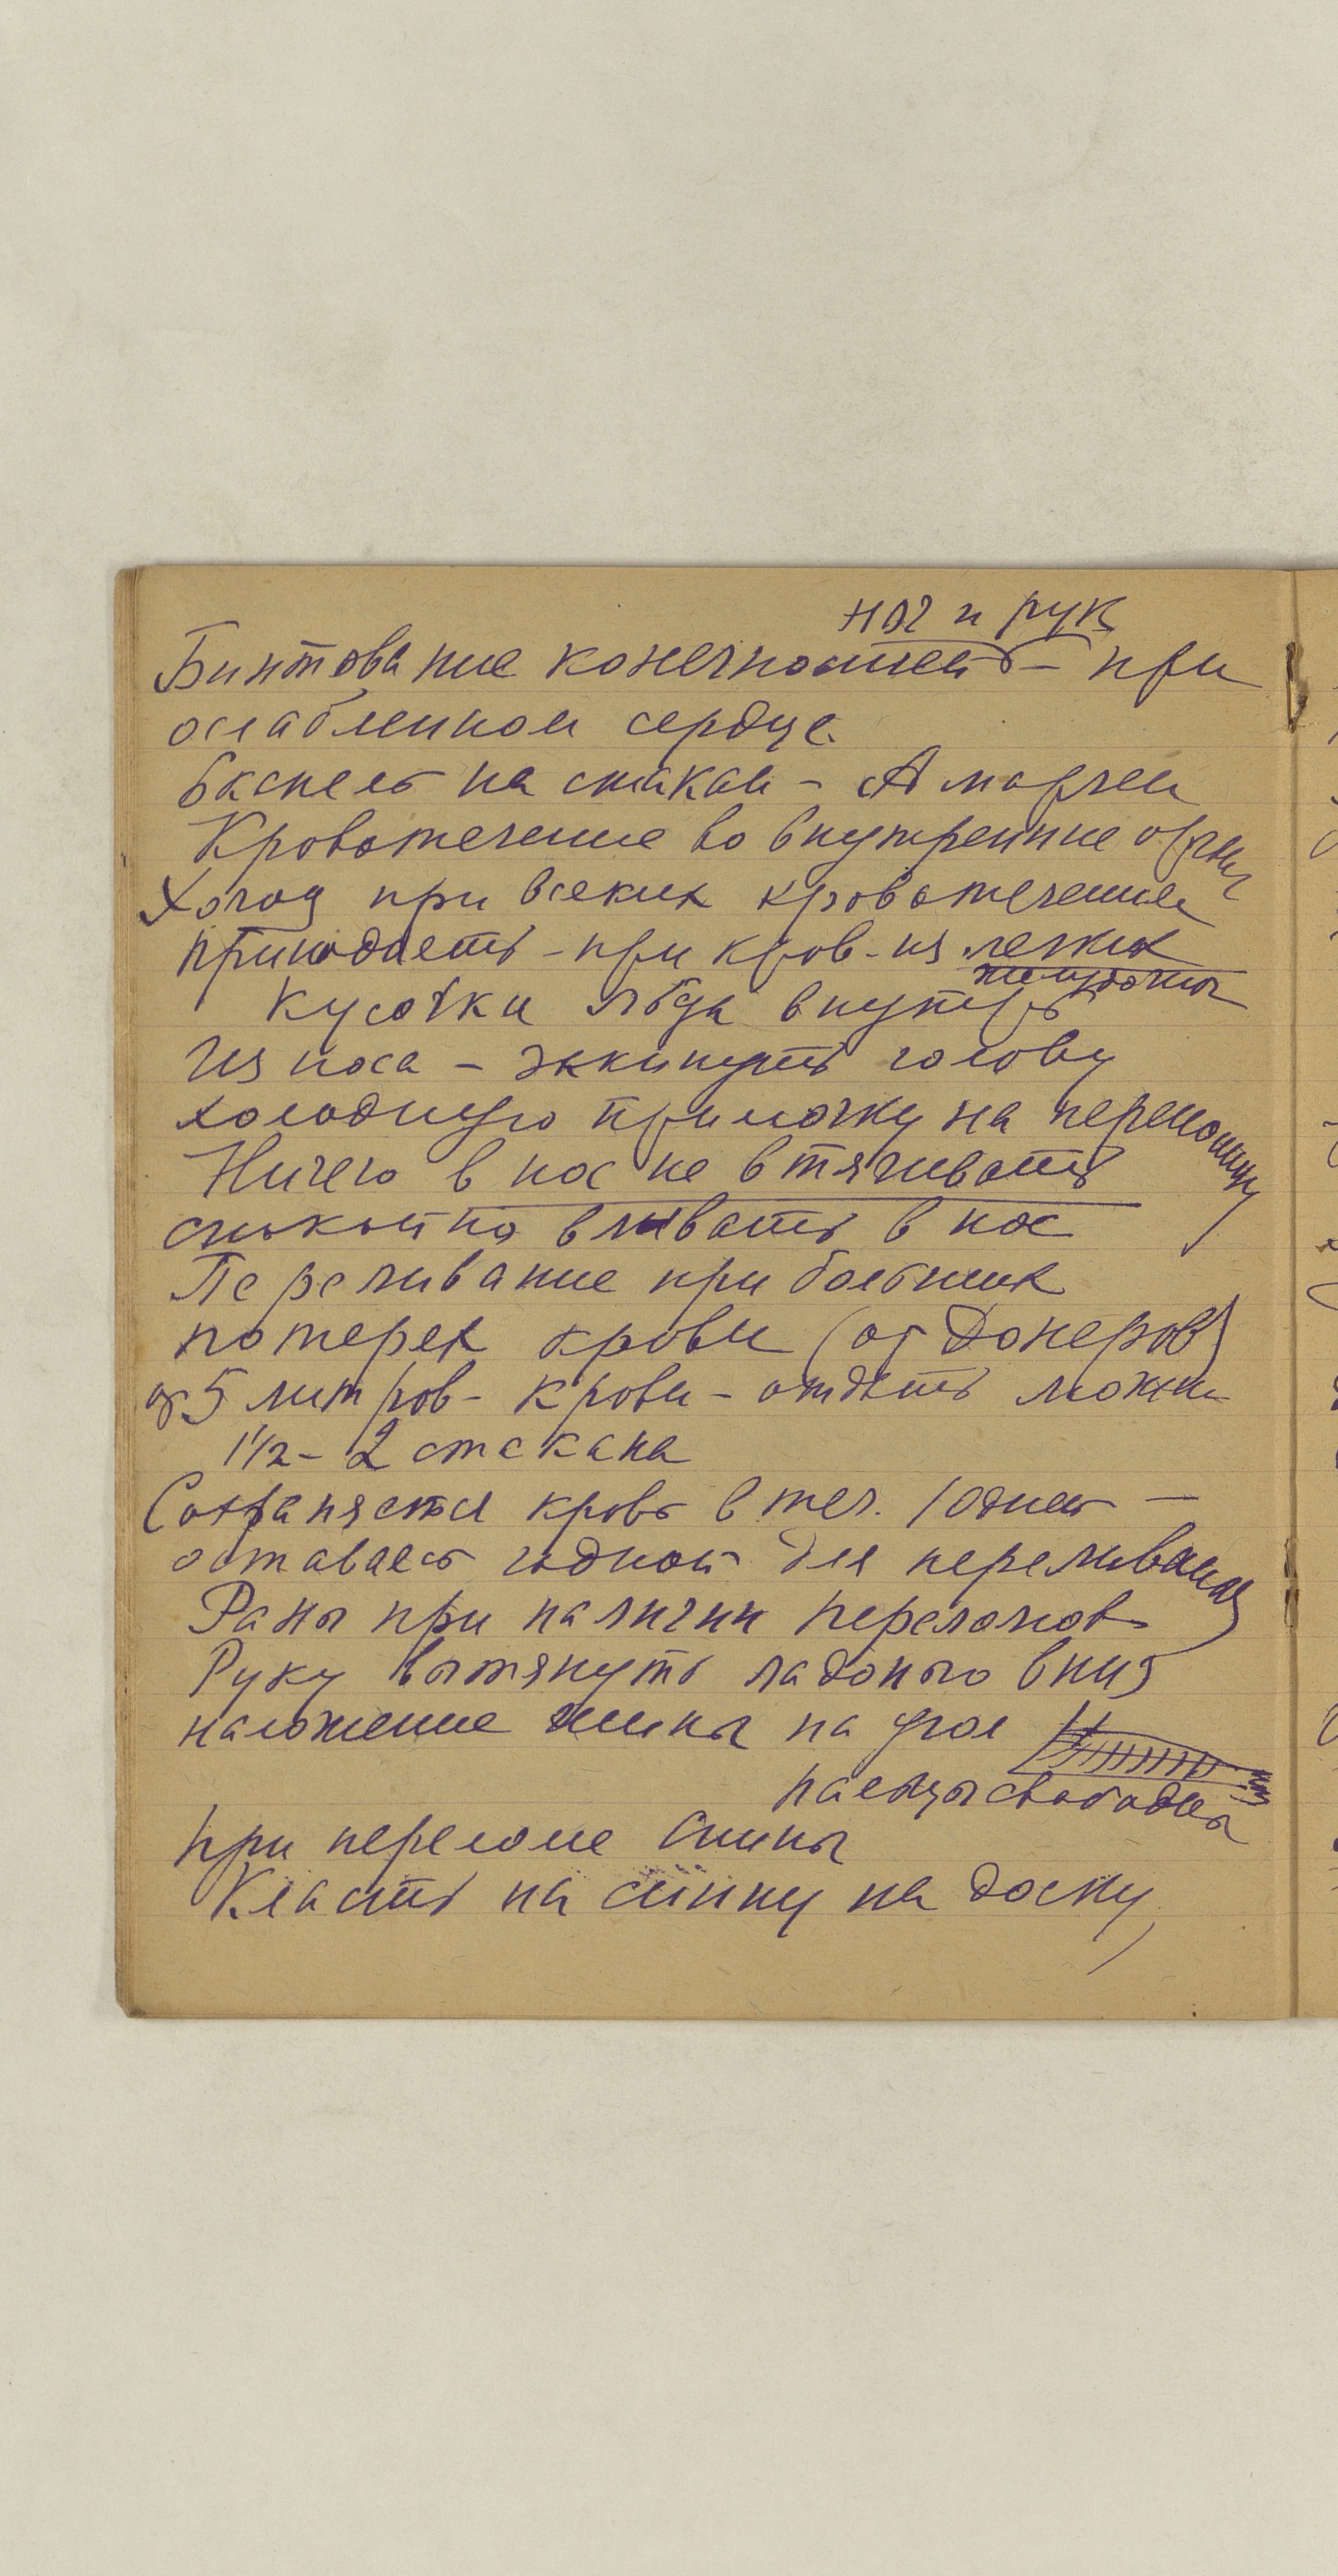 ног и рук
Бинтование конечностей – при
ослабленном сердце.
на стакан – А
Кровотечение во внутренние орган
Холод при всяких кровотечениях
при кров. из легких
желудочных
Кусочки льда внутрь
Из носа – закинуть голову
холодную примочку на переносицу
Ничего в нос не втягивать
вливать в нос
Переливание при больших
потерях крови (от донеров)
из 5 литров – крови – отдать можно
1½ – 2 стакана
Сохраняется кровь в теч. 10 дней –
оставаясь годной для переливания
Раны при наличии переломов
Руку вытянуть ладонью вниз
наложение шины на
пальцы свободны
при переломе спины
Класть на спину на доску